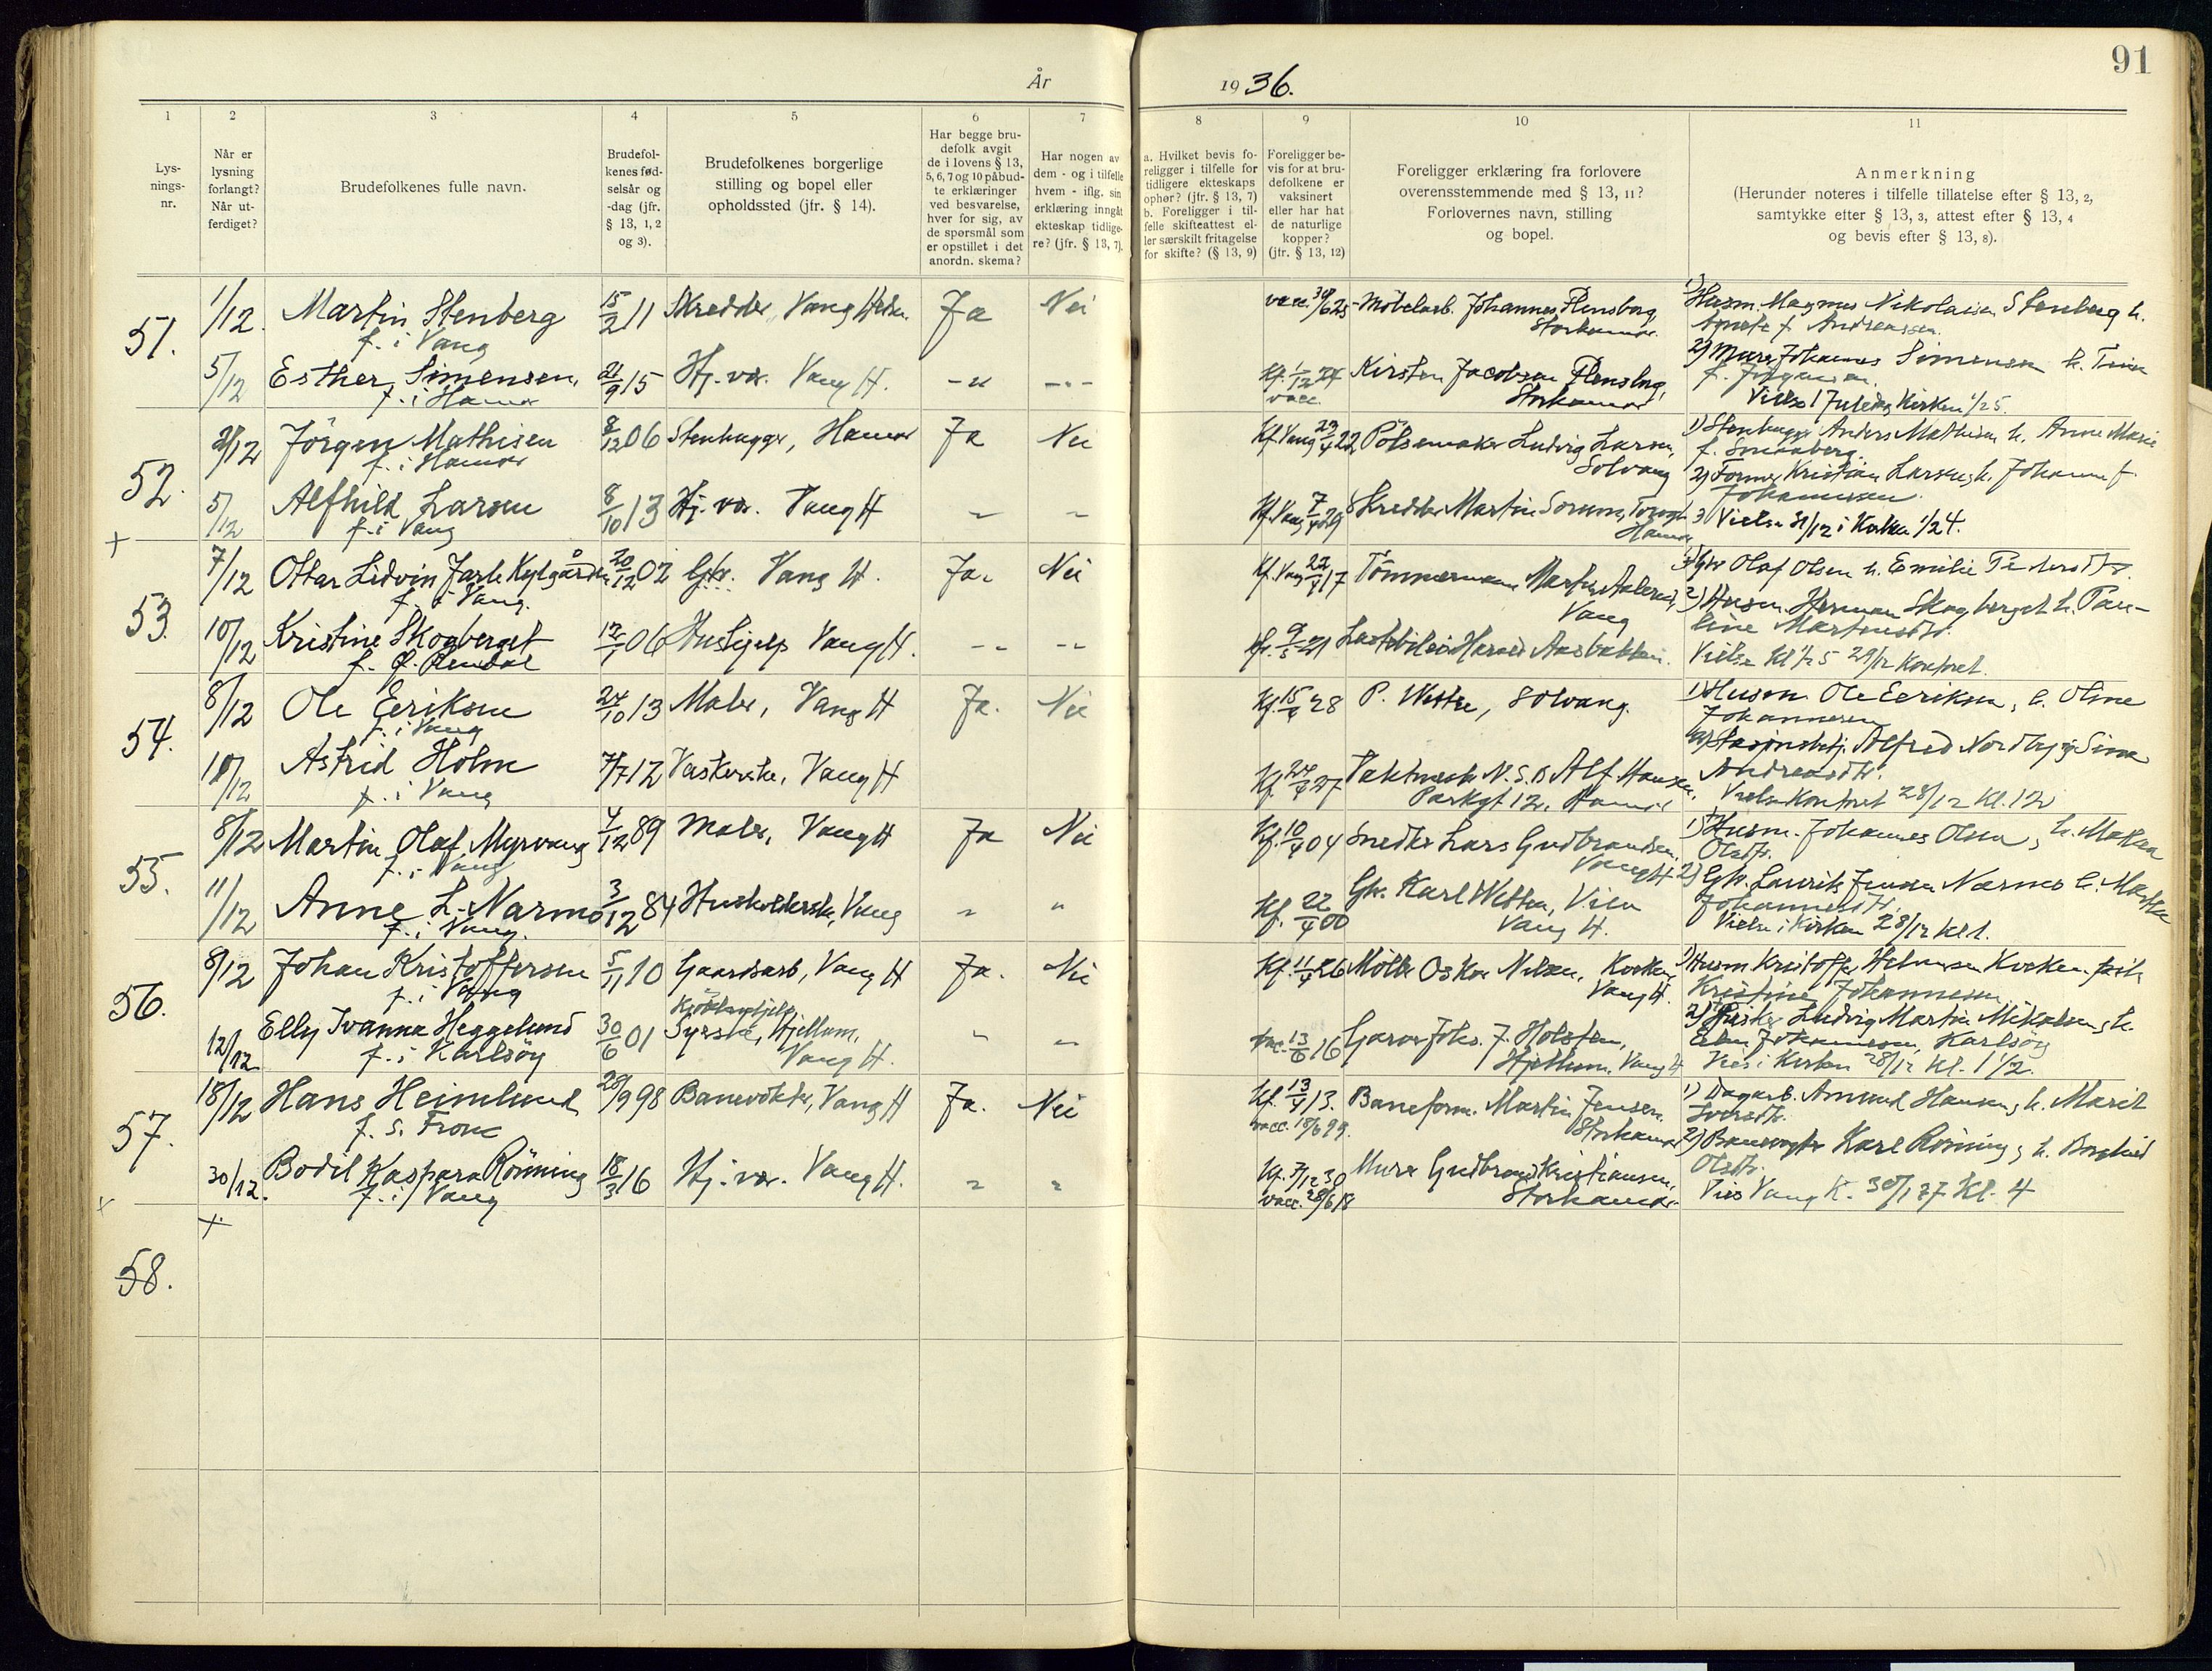 91
År 1936.
1
Lys-
nings-
nr.
2
Når er
lysning
forlangt?
Når ut-
ferdiget?
3
Brudefolkenes fulle navn.
4
Brudefol-
kenes fød-
selsår og
-dag (jfr.
§ 13, 1, 2
og 3).
5
Brudefolkenes borgerlige
stilling og bopel eller
opholdssted (jfr. § 14).
6
Har begge bru-
defolk avgit
de i lovens § 13,
5, 6, 7 og 10 påbud-
te erklæringer
ved besvarelse,
hver for sig, av
de spørsmål som
er opstillet i det
anordn. skema?
7
Har nogen av
dem - og i tilfelle
hvem - iflg. sin
erklæring inngåt
ekteskap tidlige-
re? (jfr. § 13, 7).
8
a. Hvilket bevis fo-
religger i tilfelle for
tidligere ekteskaps
ophør? (jfr. § 13, 7)
b. Foreligger i til-
felle skifteattest el-
ler særskilt fritagelse
for skifte? (§ 13, 9)
9
Foreligger be-
vis for at bru-
defolkene er
vaksinert
eller har hat
de naturlige
kopper?
(jfr. § 13, 12)
10
Foreligger erklæring fra forlovere
overensstemmende med § 13, 11?
Forlovernes navn, stilling
og bopel.
11
Anmerkning
(Herunder noteres i tilfelle tillatelse efter § 13, 2,
samtykke efter § 13, 3, attest efter § 13, 4
og bevis efter § 13, 8).
51. 1/12. Martin Stenberg 15/2 11 Skredder, Vang Ja Nei vacc. Möbelarb. Johannes Flensborg, 1) Husm. Magnus Nikolaisen Stenberg h.
f. i Vang Storhamar. f. Andreassen.
5/12 Esther Simensen, 21/9 15 Hj. vær. Vang H. -"- -"- Kirsten Jacobsen Flensborg, 2) Murer Johannes Simensen h.
f. i Hamar vacc. Storhamar Vielse 1 Juledag Kirken 1/2 5.
52. 2/12 Jörgen Mathisen 8/12 06 Stenhugger, Hamar Ja Nei Kf. Vang 23/4 22 Pölsemaker Ludvig Larsen, 1) Stenhugger Anders Mathisen h. Anne Marie
f. i Hamar Solvang f.
5/12 Alfhild Larsen 8/10 13 Hj. vær. Vang H " " Kf. Vang 7/4 29 Skredder Martin 2) Former Kristian Larsen h. Johanne f.
f. i Vang Hamar Johannessen.
3) Vielse 31/12 i Kirken 1/2 4.
+
53. 7/12 Ottar Lidvin Jarle 20/12 02 Gbr. Vang H. Ja. Nei Kf. Vang 22/4 17 Tömmermann Martin 1) Gbr Olaf Olsen h. Emilie
f. i Vang. Vang
10/12 Kristine Skogberget 12/1 06 Hushjelp Vang H. -"- -"- Kf. 9/5 21 Lastebileier Harald Aasbakken. 2) Husm. Herman Skogberget h. Pau-
f. Ø. Rendal line Martinsdtr.
Vielse Kl 1/2 5 29/12 Kontoret.
54. 8/12 Ole Eeriksen 24/10 13 Maler, Vang H Ja. Nei Kf. 15/4 28 P. Westre, Solvang. 1) Husm Ole Eeriksen, h. Oline
f. i Vang Johannesen
10/12 Astrid Holm 7/7 12 Vaskerske, Vang H Kf. 24/4 27 Vaktmester N.S.B Alf. Hansen, Alfred Nordby og Sina
f. i Vang Parkgt 12, Hamar Andreasdtr.
Vielse Kontoret 28/12 Kl. 12
55. 8/12 Martin Olaf Myrvang 4/12 89 Maler, Vang H Ja Nei Kf. 10/4 04 Snedker Lars Gudbrandsen, 1) Husm. Johannes Olsen, h.
f. i Vang Vang H Olsdtr.
11/12 Anne L. Narmo 3/12 84 Husholderske, Vang " " Kf. 22/4 00 Gbr. Karl Wetten, Vien 2) Gbr. Laurits Jensen Narmo h. Marthe
f. i Vang. Vang H. Johannesdtr.
Vielse i Kirken 28/12 Kl 1.
56. 8/12 Johan Kristoffersen 5/11 10 Gaardsarb, Vang H Ja. Nei Kf. 11/4 26 Möller Oskar Nilsen, 1) Husm Kristoffer
f. i Vang Vang H. Kristine Johannesen
12/12 Elly Ivanna Heggelund 30/6 01 Kjökkenhjelp " " vacc. 13/6 16 Garver Johs. J. Holsten, 2) Fisker Ludvig Martin Mikalsen, h.
f. i Karlsöy Syerske, Hjellum, Hjellum, Vang H Johannesen, Karlsöy
Vang H. Vies i Kirken 28/12 Kl. 1 1/2.
57. 18/12 Hans Heimlund 28/9 98 Banevokter, Vang H Ja. Nei Kf. 13/4 13. Baneform. Martin Jensen. 1) Dagarb. Amund Hansen, h. Marit
f. S. Fron vacc. 18/6 99. Storhamar Iversdtr.
30/12. Bodil Kaspara Rönning 18/3 16 Hj. vær. Vang H. " " Kf. 7/12 30 Murer Gudbrand Kristiansen, 2) Banevogter Karl Rönning, h. Borghild
f. i Vang vacc. 28/6 18 Storhamar Olsdtr.
+ Vies Vang K. 30/1 37 Kl. 4
58.